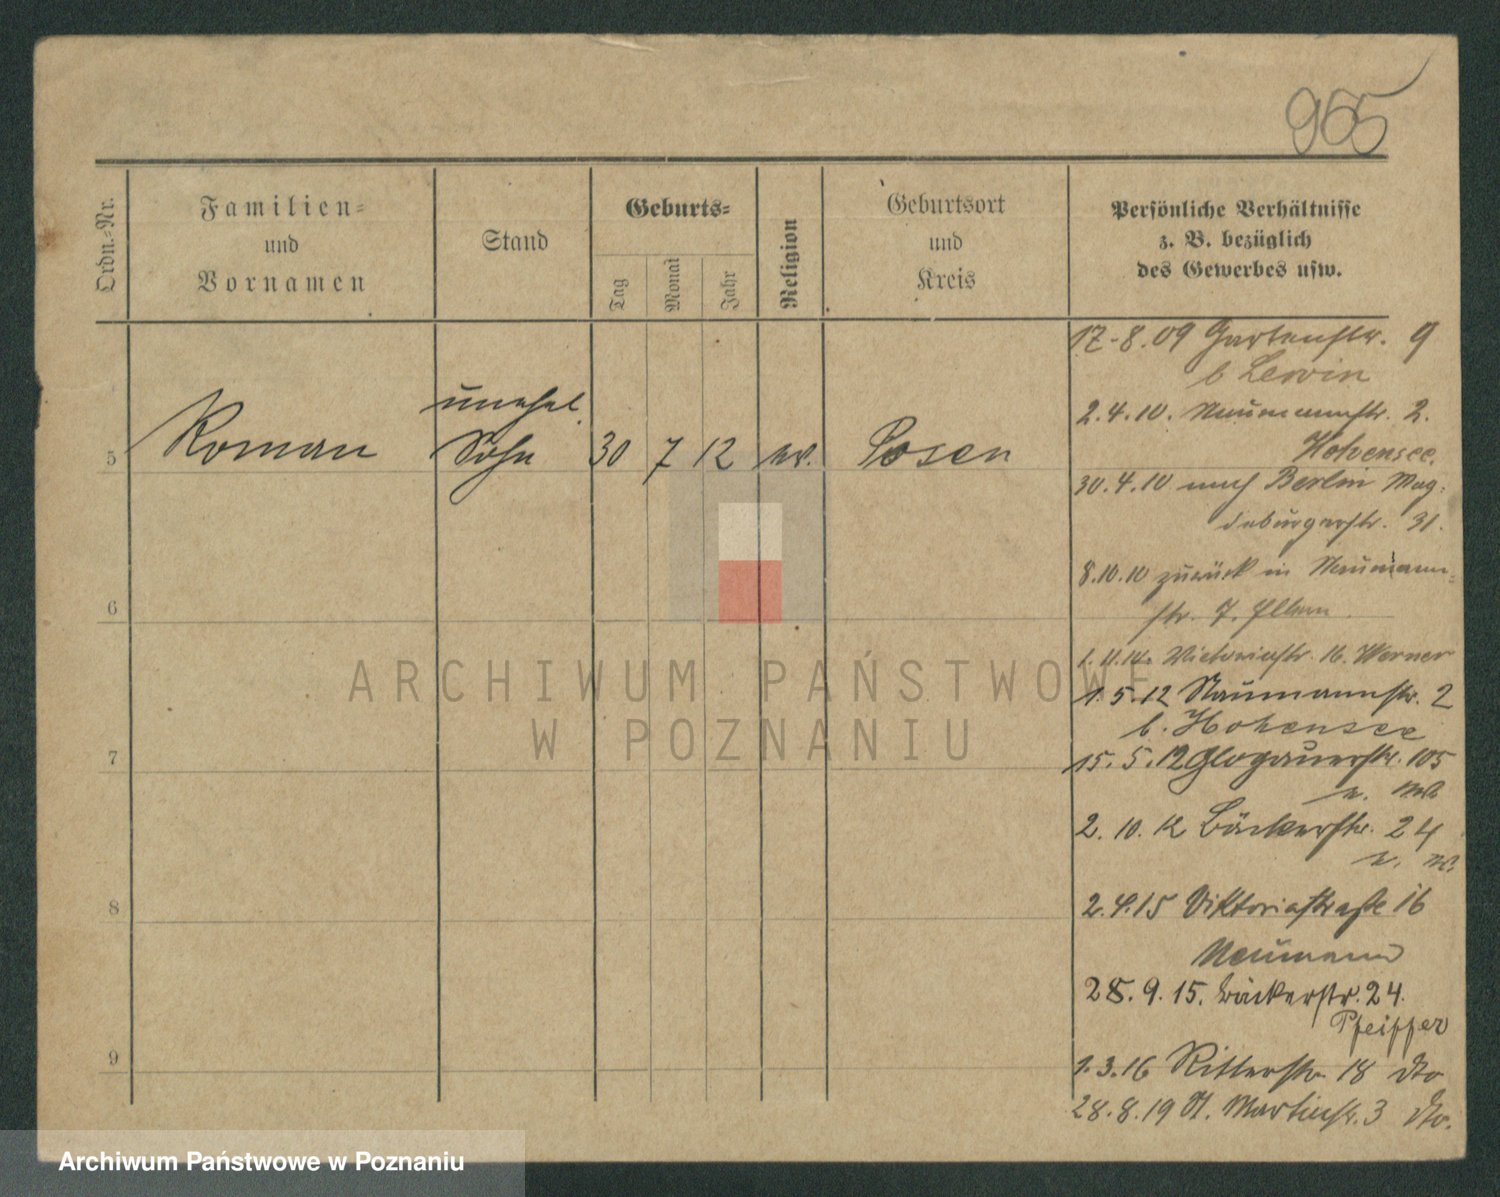 965
Ordn.-Nr.
Familien-
und
Vornamen
Stand
Geburts-
Tag
Monat
Jahr
Religion
Geburtsort
und
Kreis
Persönliche Verhältnisse
z. B. bezüglich
des Gewerbes usw.
17-8.09 Gartenstr. 9
b Lewin
2.4.10. Naumannstr. 2.
Hohensee.
30.4.10 nach Berlin Mag-
deburgerstr. 31.
8.10.10 zurück in Naumann-
str. 7.
Victoriastr. 16. Werner
1.5.12 Naumannstr. 2
b. Hohensee
15.5.12 Glogauerstr. 105
2.10.12 Bäckerstr. 24
2.4.15 Viktoriastraße 16
Neumann
28.9.15. Bäckerstr. 24.
Pfeiffer
1.3.16 Ritterstr. 18 dto
28.8.19 St. Martinstr. 3 dto.
5 Roman
unehel.
Sohn 30 7 12 Posen
6
7
8
9
ARCHIWUM PAŃSTWOWE
W POZNANIU
Archiwum Państwowe w Poznaniu